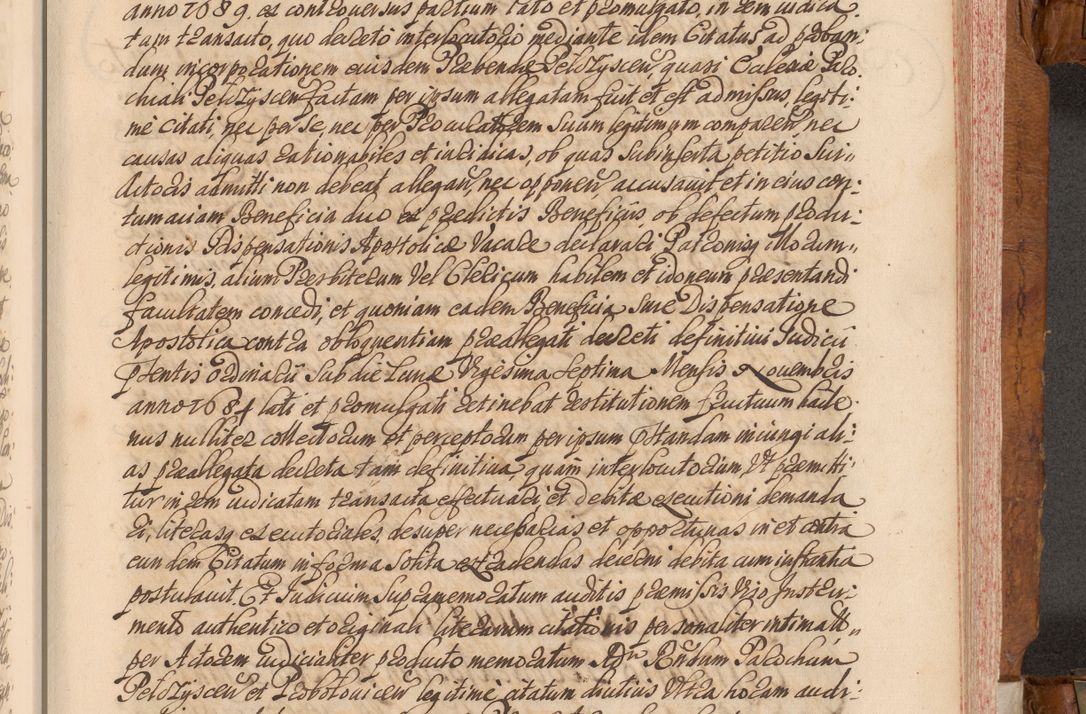 anno 1689. ex controversus partium lato et promulgato, in rem iudica
tam transacto, quo decreto interlocutorio mediante idem Citatus, ad proban:
dam incorporationem eiusdem Præbendæ Pelczyscen, quasi Ecclesiæ Paro
chiali Pelczyscen factam per ipsum allegatam fuit et est admissus, legiti:
me citati, nec per se, nec per Procuratorem Suum legitimum comparen nec
causas aliquas rationabiles et iuridicas, ob quas Subinserta petitio Sui,,
Actoris admitti non debeat allegan, nec opponen, accusavit et in eius con:
tumaciam Beneficia duo ex prædictis Beneficiis ob defectum produ:
ctionis Dispensationis Apostolicæ Vacare declarari Patronisq illorum,,
legitimis, alium Presbiterum Vel Clericum habilem et idoneum præsentandi
facultatem concedi, et quoniam eadem Beneficia Sine Dispensatione
Apostolica contra obloquentiam præallegati decreti definitivi Iudicii
Pñtentis Ordinarii Sub die Lunæ Vigesima Septima Mensis Novembris
anno 1684 lati et promulgati retinebat restitutionem fructuum hacte:
nus nulliter collectorum et perceptorum per ipsum Citandam iniungi ali:
as præallegata decreta tam definitiva, quam interlocutorium Ut præmitti
tur in rem iudicatam transacta effectuari et debitæ executioni demanda
ri, literasq executoriales desuper necessarias et opportunas in et contra
eundem Citatum in forma Solita extradendas decerni debita cum instantia
postulavit. Et Iudicium Supramemoratum auditis præmissis Viso Instru:
mento authentico et originali literarum citationis personaliter intimatt,,
per Actorem iudicialiter producto memoratum Adm Rndum Parochum
Pelczyscen et Probolovicen legitime citatum diutius Ultra horam audi: